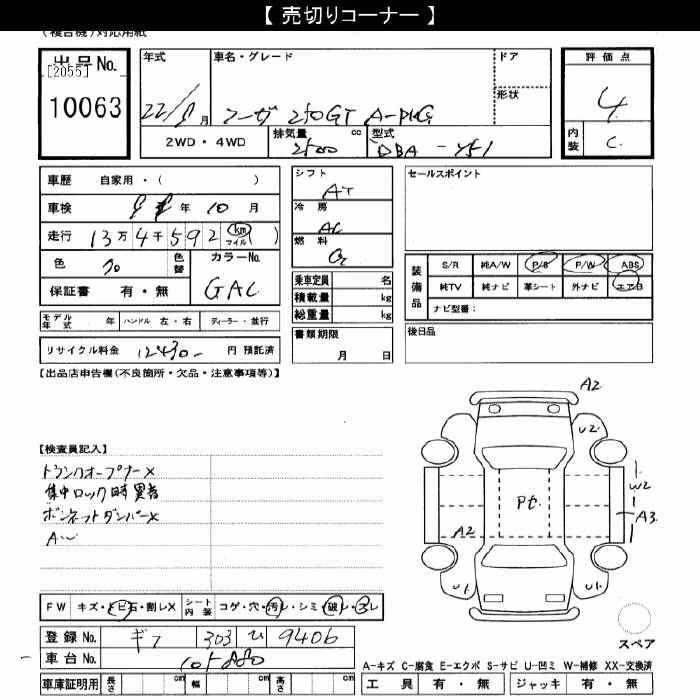 【 売切りコーナー 】
(複合機)対応用紙
出品No.
[2055]
10063
年式
22/ 月
車名・グレード
フーガ 250GT A-PKG
ドア
形状
2WD・4WD
排気量 cc
2500
型式
DBA - Y51
評価点
4
内装
C
車歴 自家用・( )
車検 年 10 月
走行 13万4千592 km マイル ( )
色
色替
カラーNo.
GAC
保証書 有・無
シフト
AT
冷房
AC
燃料
乗車定員 名
積載量 kg
総重量 kg
書類期限
月 日
セールスポイント
装備品
S/R 純A/W P/S P/W ABS
純TV 純ナビ 革シート 外ナビ エアB
ナビ型番:
後日品
モデル年式 年 ハンドル 左・右 ディーラー・並行
リサイクル料金 12430- 円 預託済
【出品店申告欄(不良箇所・欠品・注意事項等)】
【検査員記入】
トランクオープナー×
集中ロック時異音
ボンネットダンパー×
A〜
A2
U2
W2
A3
Pt.
A2
U1
U1
スペア
FW キズ・トビ石・割レX シート内装 コゲ・穴・汚レ・シミ・破レ・スレ
登録No. ギフ 303 ひ 9406
車台No.
車庫証明用 長さ cm 幅 cm 高さ cm
A-キズ C-腐食 E-エクボ S-サビ U-凹ミ W-補修 XX-交換済
工具 有・無 ジャッキ 有・無